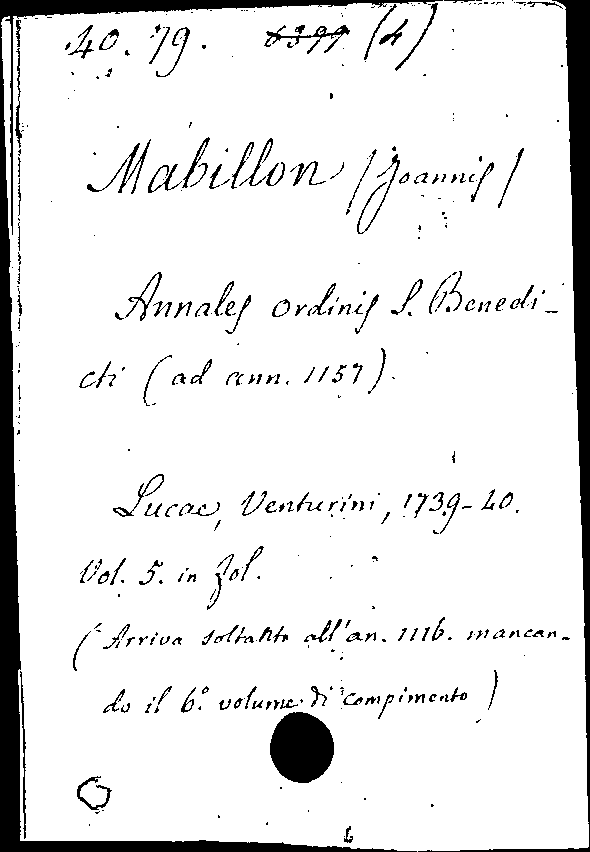 40. 79. 6399 (4)
Mabillon (Joannis)
Annales ordinis S. Benedi-
cti (ad ann. 1157).
Lucae, Venturini, 1739-40.
Vol. 5. in fol.
(Arriva soltanto all'an. 1116. mancan-
do il 6.º volume di compimento)